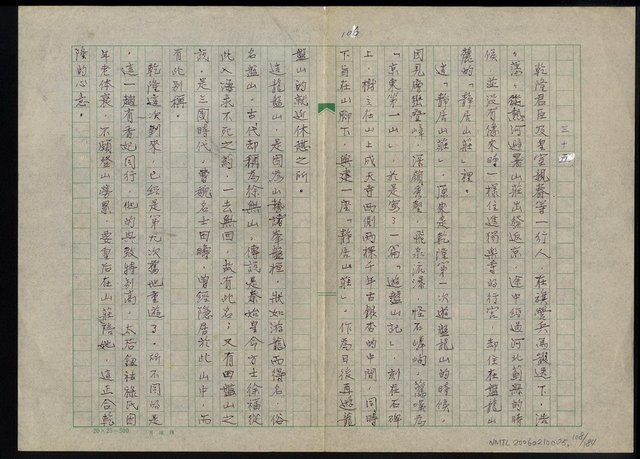 106
三十五
乾隆君臣及皇室親眷等一行人，在旗營兵馬護送下，浩浩
蕩蕩，從熱河避暑山莊出發返京，途中經過河北薊縣的時
候，並沒有像來時一樣住進獨樂寺的行宮，却住在盤龍山
麓的「靜居山莊」裡。
「靜居山莊」，原來是乾隆第一次遊盤龍山的時候，
因見層巒疊嶂，深嶺重壑，飛泉流瀑，怪石嶙峋，驚嘆為
「京東第一山」，於是寫了一篇「遊盤山記」，刻在石碑
上，樹立在山上成天寺西側兩棵千年古銀杏的中間，同時
下旨在山脚下，興建一座「靜居山莊」，作為日後再遊龍
盤山的就近休憩之所。
這龍盤山，是因為山勢諸峯盤桓，狀如游龍而得名，俗
名盤山，古代却稱為徐無山，傳說是秦始皇令方士徐福從
此入海求不死之藥，一去無回，故有此名；又有田盤山之
說，是三國時代，曹魏名士田疇，曾經隱居於此山中，而
有此別稱。
乾隆這次到來，已經是第九次舊地重遊了，所不同的是
，這一趟有香妃同行，他的興致特別高，太后鈕祜祿氏因
年老体衰，不願登山勞累，要皇后在山莊陪她，這正合乾
隆的心意。
20×25=500
NMTL 20060210025, 108/184